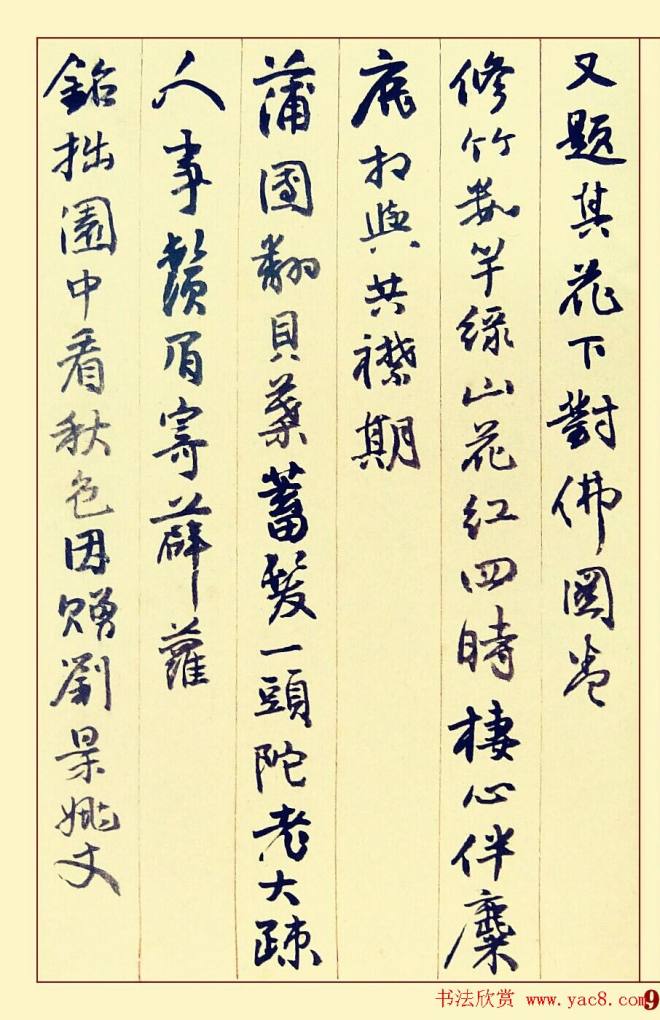 又题其花下對佛圖卷
修竹數竿緑山花红四時棲心伴麋
鹿相與共襟期
蒲團翻貝葉蓄髮一頭陀老大疎
人事鬚眉寄薜蘿
銘拙園中看秋色因贈劉景姚丈
书法欣赏 www.yac8.com 9